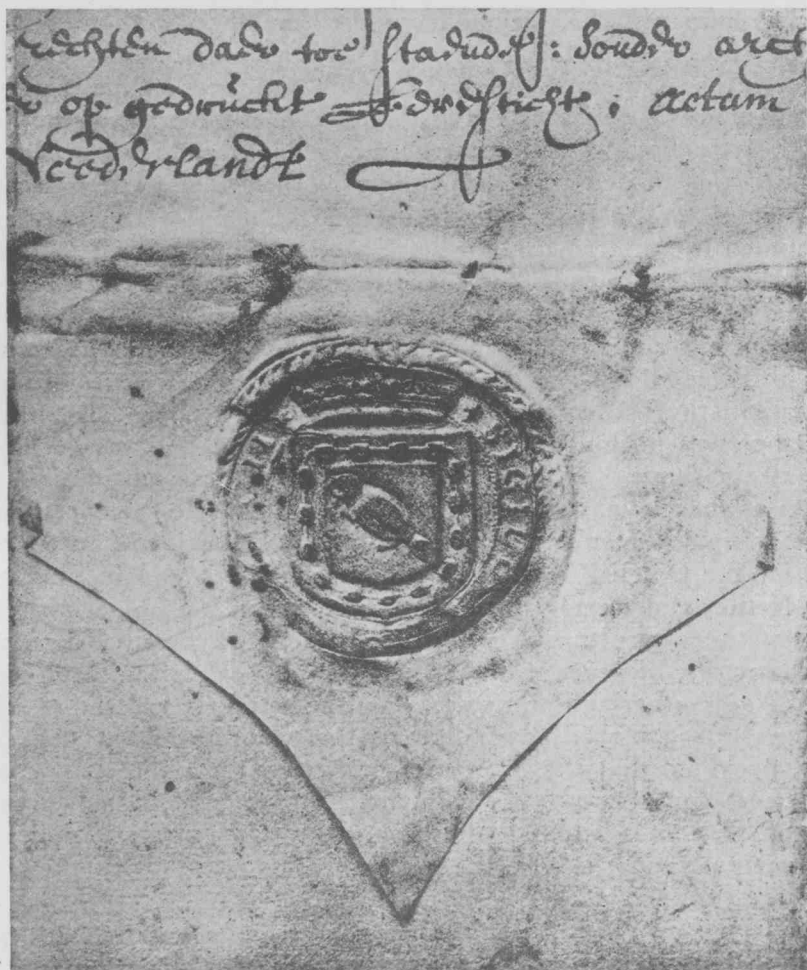 rechten daer toe staende : sonder arct
er op gedruckt actum
Neederlandt
SIGILL